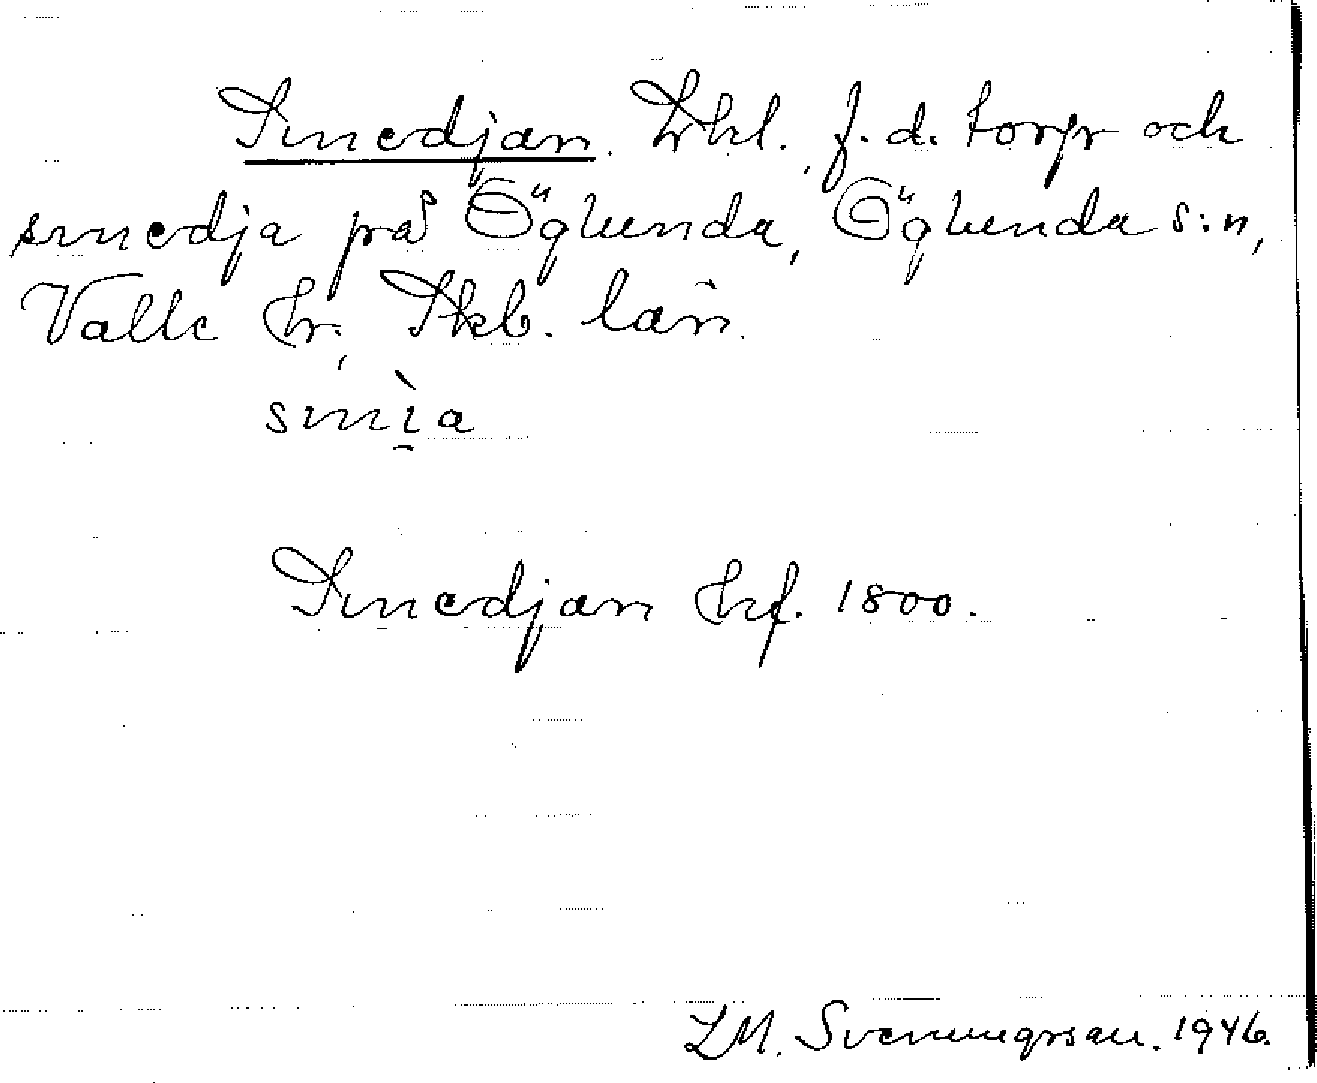 Smedjan. Lhl., f.d. torp och
smedja på Öglunda, Öglunda s:n,
Valle hr, Skb. län.
smìa
Smedjan hf. 1800.
LM. Svenungsson. 1946.